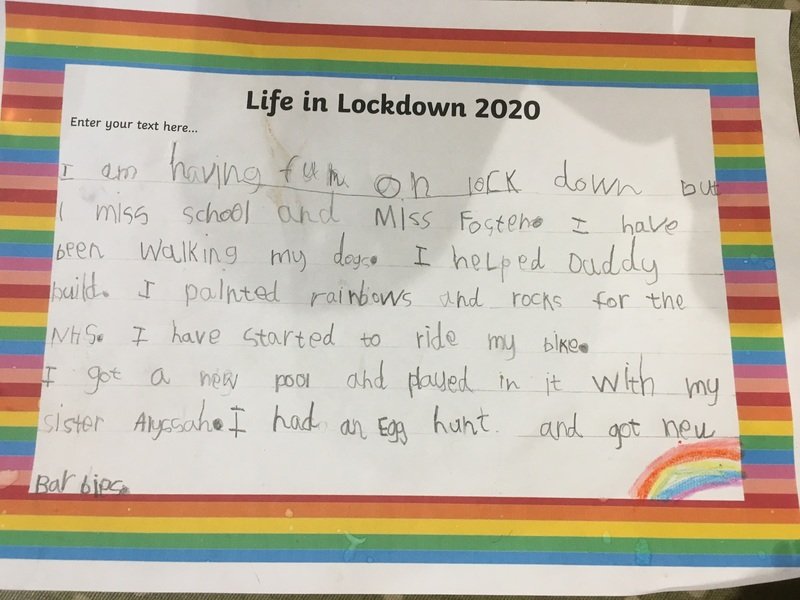 Life in Lockdown 2020
Enter your text here...
I am having fun on lock down but
I miss school and Miss Foster. I have
been walking my dogs. I helped Daddy
build. I painted rainbows and rocks for the
NHS. I have started to ride my bike.
I got a new pool and played in it with my
sister Alyssah. I had an Egg hunt. and got new
Barbies.